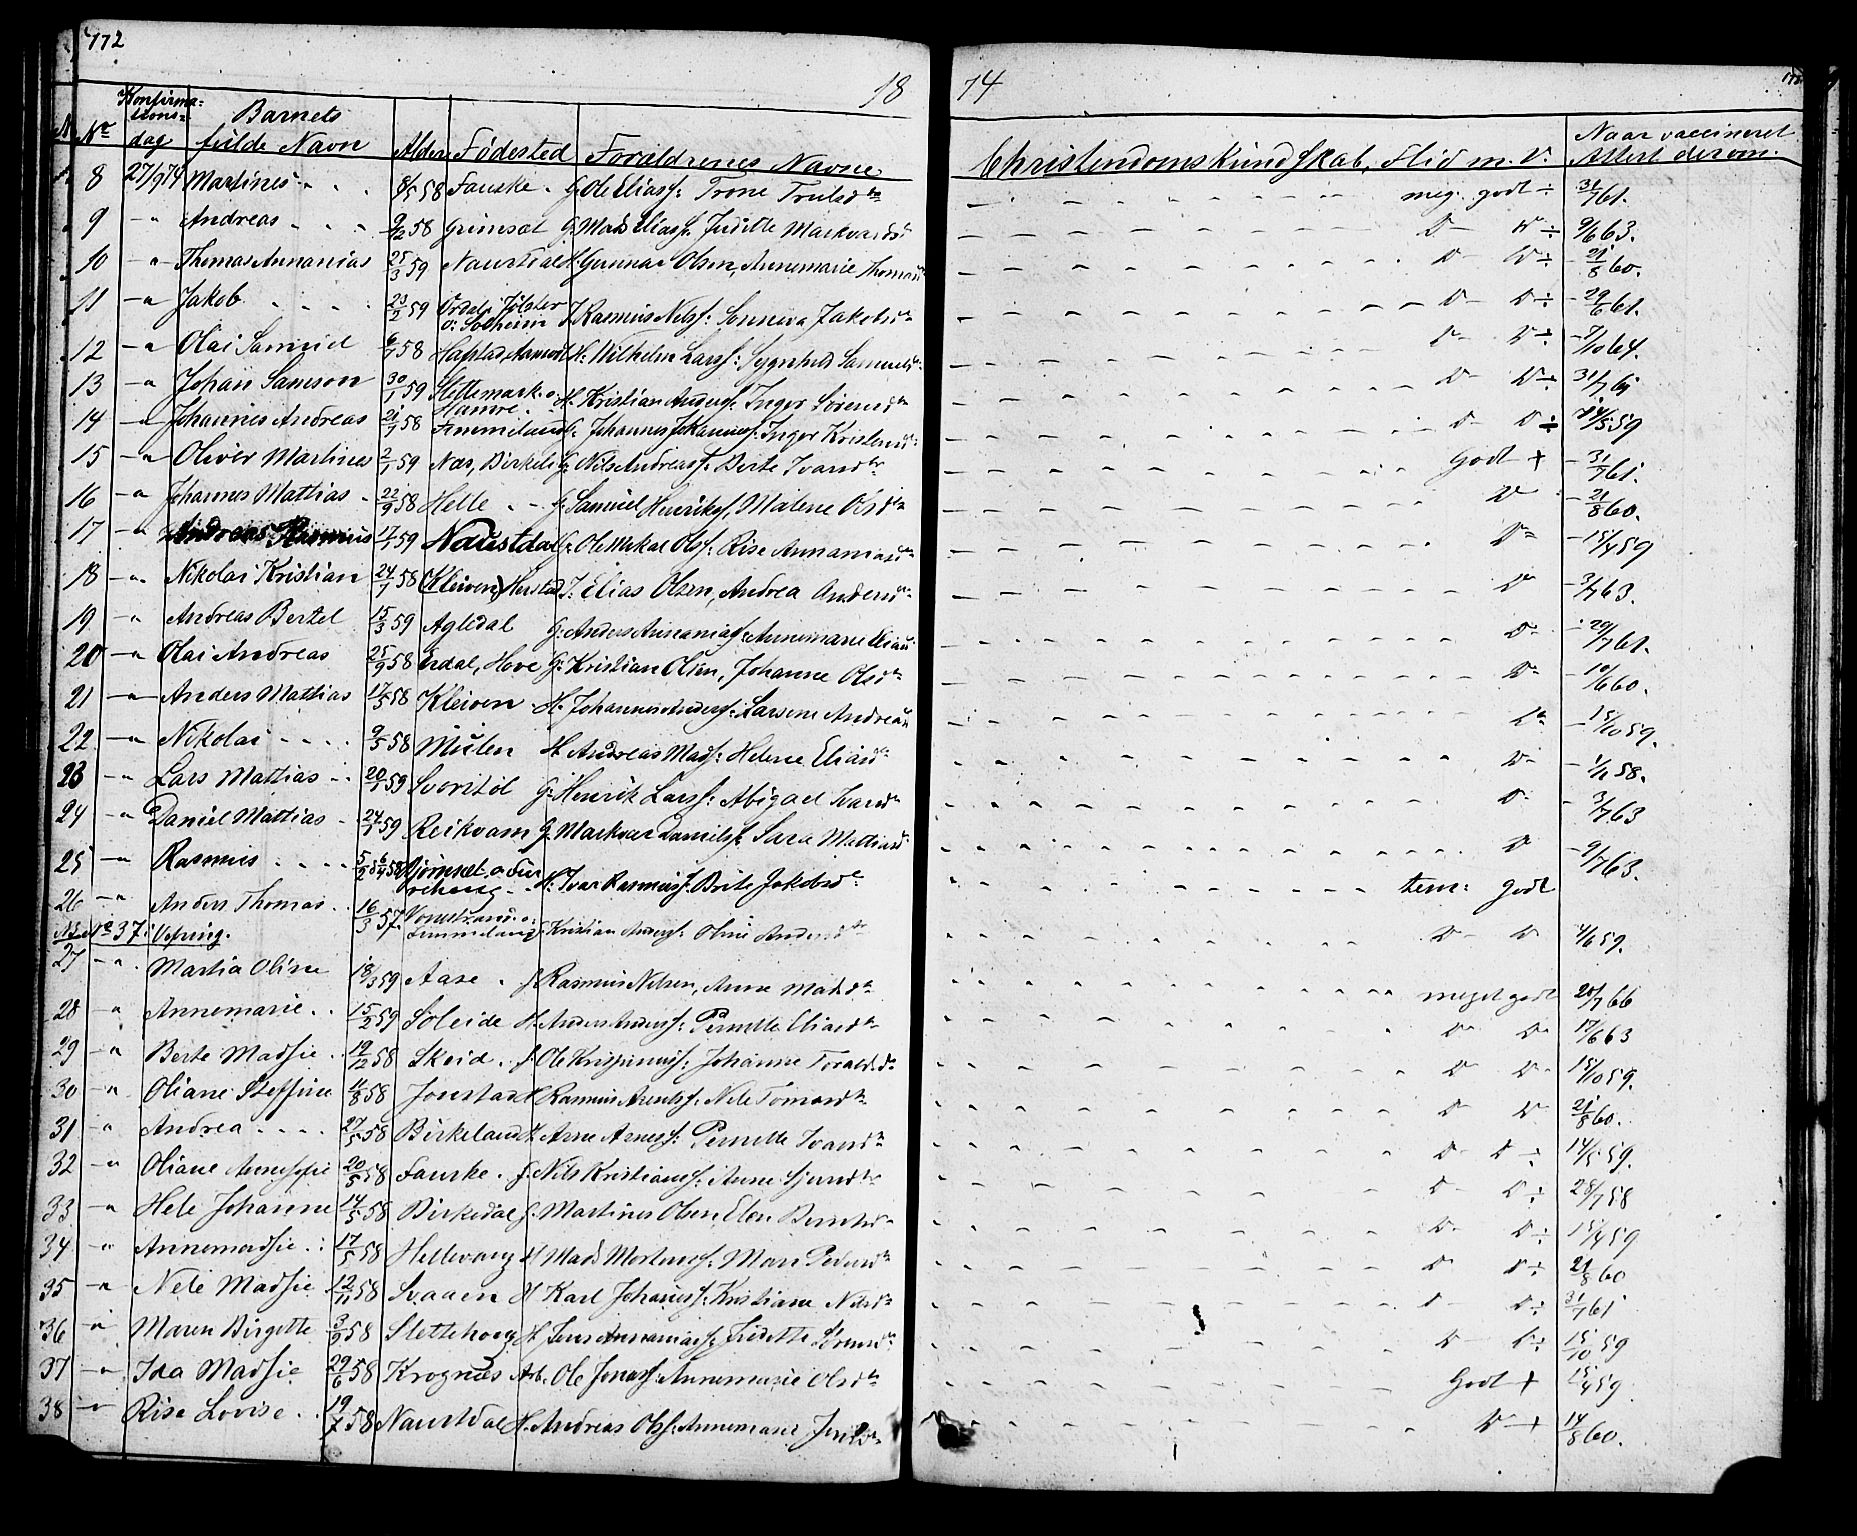 172
18 74
Konfirma-
tions-
Barnets
No dag fulde Navn Alder Fødested Forældrenes Navne. Christendomskundskab, Flid m. v. Naar vaccineret
Attest derom.
8 27/9 74 Martines 8/5 58 Fauske G. Ole Eliass: Trone Trulsdtr meg. godt ÷ 31/7 61.
9 -"- Andreas 9/12 58 Grimset G. Mads Eliass: Juditte Markvardsd D- D÷ 9/6 63.
10 -"- Thomas Annanias 25/3 59 Naustdal H. Gunnar Olsen, Annemarie Thomasd D- D÷ 21/8 60.
11 -"- Jakob 23/2 59 Jølster
o: Solheim J. Rasmus Nilss: Sønneva Jakobsdr D- D÷ 29/6 61.
12 -"- Olai Samuel 6/7 58 Hafstad H. Wilhelm Larss: Samuelsd D- D÷ 7/10 64.
13 -"- Johan Samson 30/1 59 Slettemark o:
Hamre H. Kristian Anderss: Inger Sørensdr D- D÷ 31/7 61
14 -"- Johannes Andreas 21/7 58 G. Johannes Johanness: Inger Kristensd D- D÷ 14/5 59
15 -"- Oliver Martines 2/1 59 Næs, Birkeli G. Nils Andreass: Berte Ivarsdtr Godt + 31/7 61.
16 -"- Johannes Mattias 22/9 58 Helle G. Samuel Henriks, Malene Olsdtr D 21/8 60.
17 -"- Andreas Rasmus 17/1 59 Naustdal G. Ole Mikal Olss: Rise Annaniasd D- 15/4 59
18 -"- Nikolai Kristian 24/7 58 (Kleiven) Herstad J. Elias Olsen, Andrea Andersdr D 3/7 63.
19 -"- Andreas Bertel 15/3 59 Agledal G. Anders Annanias: Annemarie Eliasd D- 20/7 61.
20 -"- Olai Andreas 25/9 58 Erdal, Hove G. Kristian Olsen, Johanne Olsdtr D- 10/6 60.
21 -"- Anders Mattias 17/5 58 Kleiven H. Johannes Anders: Larsine Andreasd D- 15/10 59.
22 -"- Nikolai 9/5 58 Mulen H. Andreas Mads: Helene Eliasdr D- 1/11 58.
23 -"- Lars Mattias 20/1 59 Svoritol G. Henrik Larss: Abigael Ivarsdr D- 3/7 63
24 -"- Daniel Mattias 24/1 59 Reikvam G. Markvar Daniels: Sara Mattiasd D 9/7 63.
25 -"- Rasmus H. Ivar Rasmuss: Brite Jakobsdr tem: godt
26 -"- Anders Thomas 16/3 57. Kristian Anderss: Oline Andersdtr D- D 4/6 59.
No 37:
27 -"- Martia Oline 18/3 59 Aase J. Rasmus Nilsen, Anne Madsdr meget godt 28/7 66
28 -"- Annemarie 15/2 59 Søleide H. Anders Anderss: Pernette Eliasdtr D- D- 17/6 63
29 -"- Berte Madsie 19/12 58 Skeid J. Ole Johanne Toralsdr D- D- 15/10 59.
30 -"- Oliane Steffine 11/8 58 Jonstad H. Rasmus Arentss: Nele Tomasdtr D- D 21/8 60.
31 -"- Andrea 27/5 58 Birkeland H. Arne Arness: Pernette Ivarsdr D- D÷ 14/5 59.
32 -"- Oliane Annesofie 20/5 58 Fauske J. Nils Kristians: Anne D- D÷ 28/7 58
33 -"- Hele Johanne 14/5 58 Birkedal G. Martines Olsen, Elen Berntsdr D- D÷ 15/4 59
34 -"- Annemadsie 17/5 58 Hellevang H. Mads Mortenss: Mari Pedersdtr D- D÷ 21/8 60
35 -"- Nele Madsie 12/11 58 Svaaen H. Karl Johaness: Kristiane Nilsdr D- D÷ 31/7 61
36 -"- Maren Birgitte 3/9 58 Slettehoug H. Jens Annanias: Juditte Sørensdr D- D÷ 15/10 59
37 -"- Ida Madsie 29/6 58 Krognæs Arb. Ole Jonass: Annemarie Olsdtr Godt + 15/4 59
38 -"- Rise Lovise 19/7 58 Naustdal H. Andreas Olss: Annemari D- + 14/8 60.